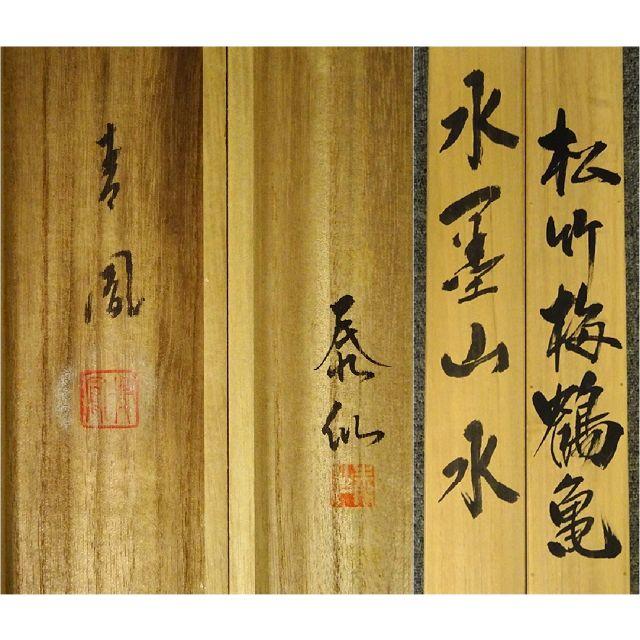 松竹梅鶴亀
水墨山水
泰仙
青鳳